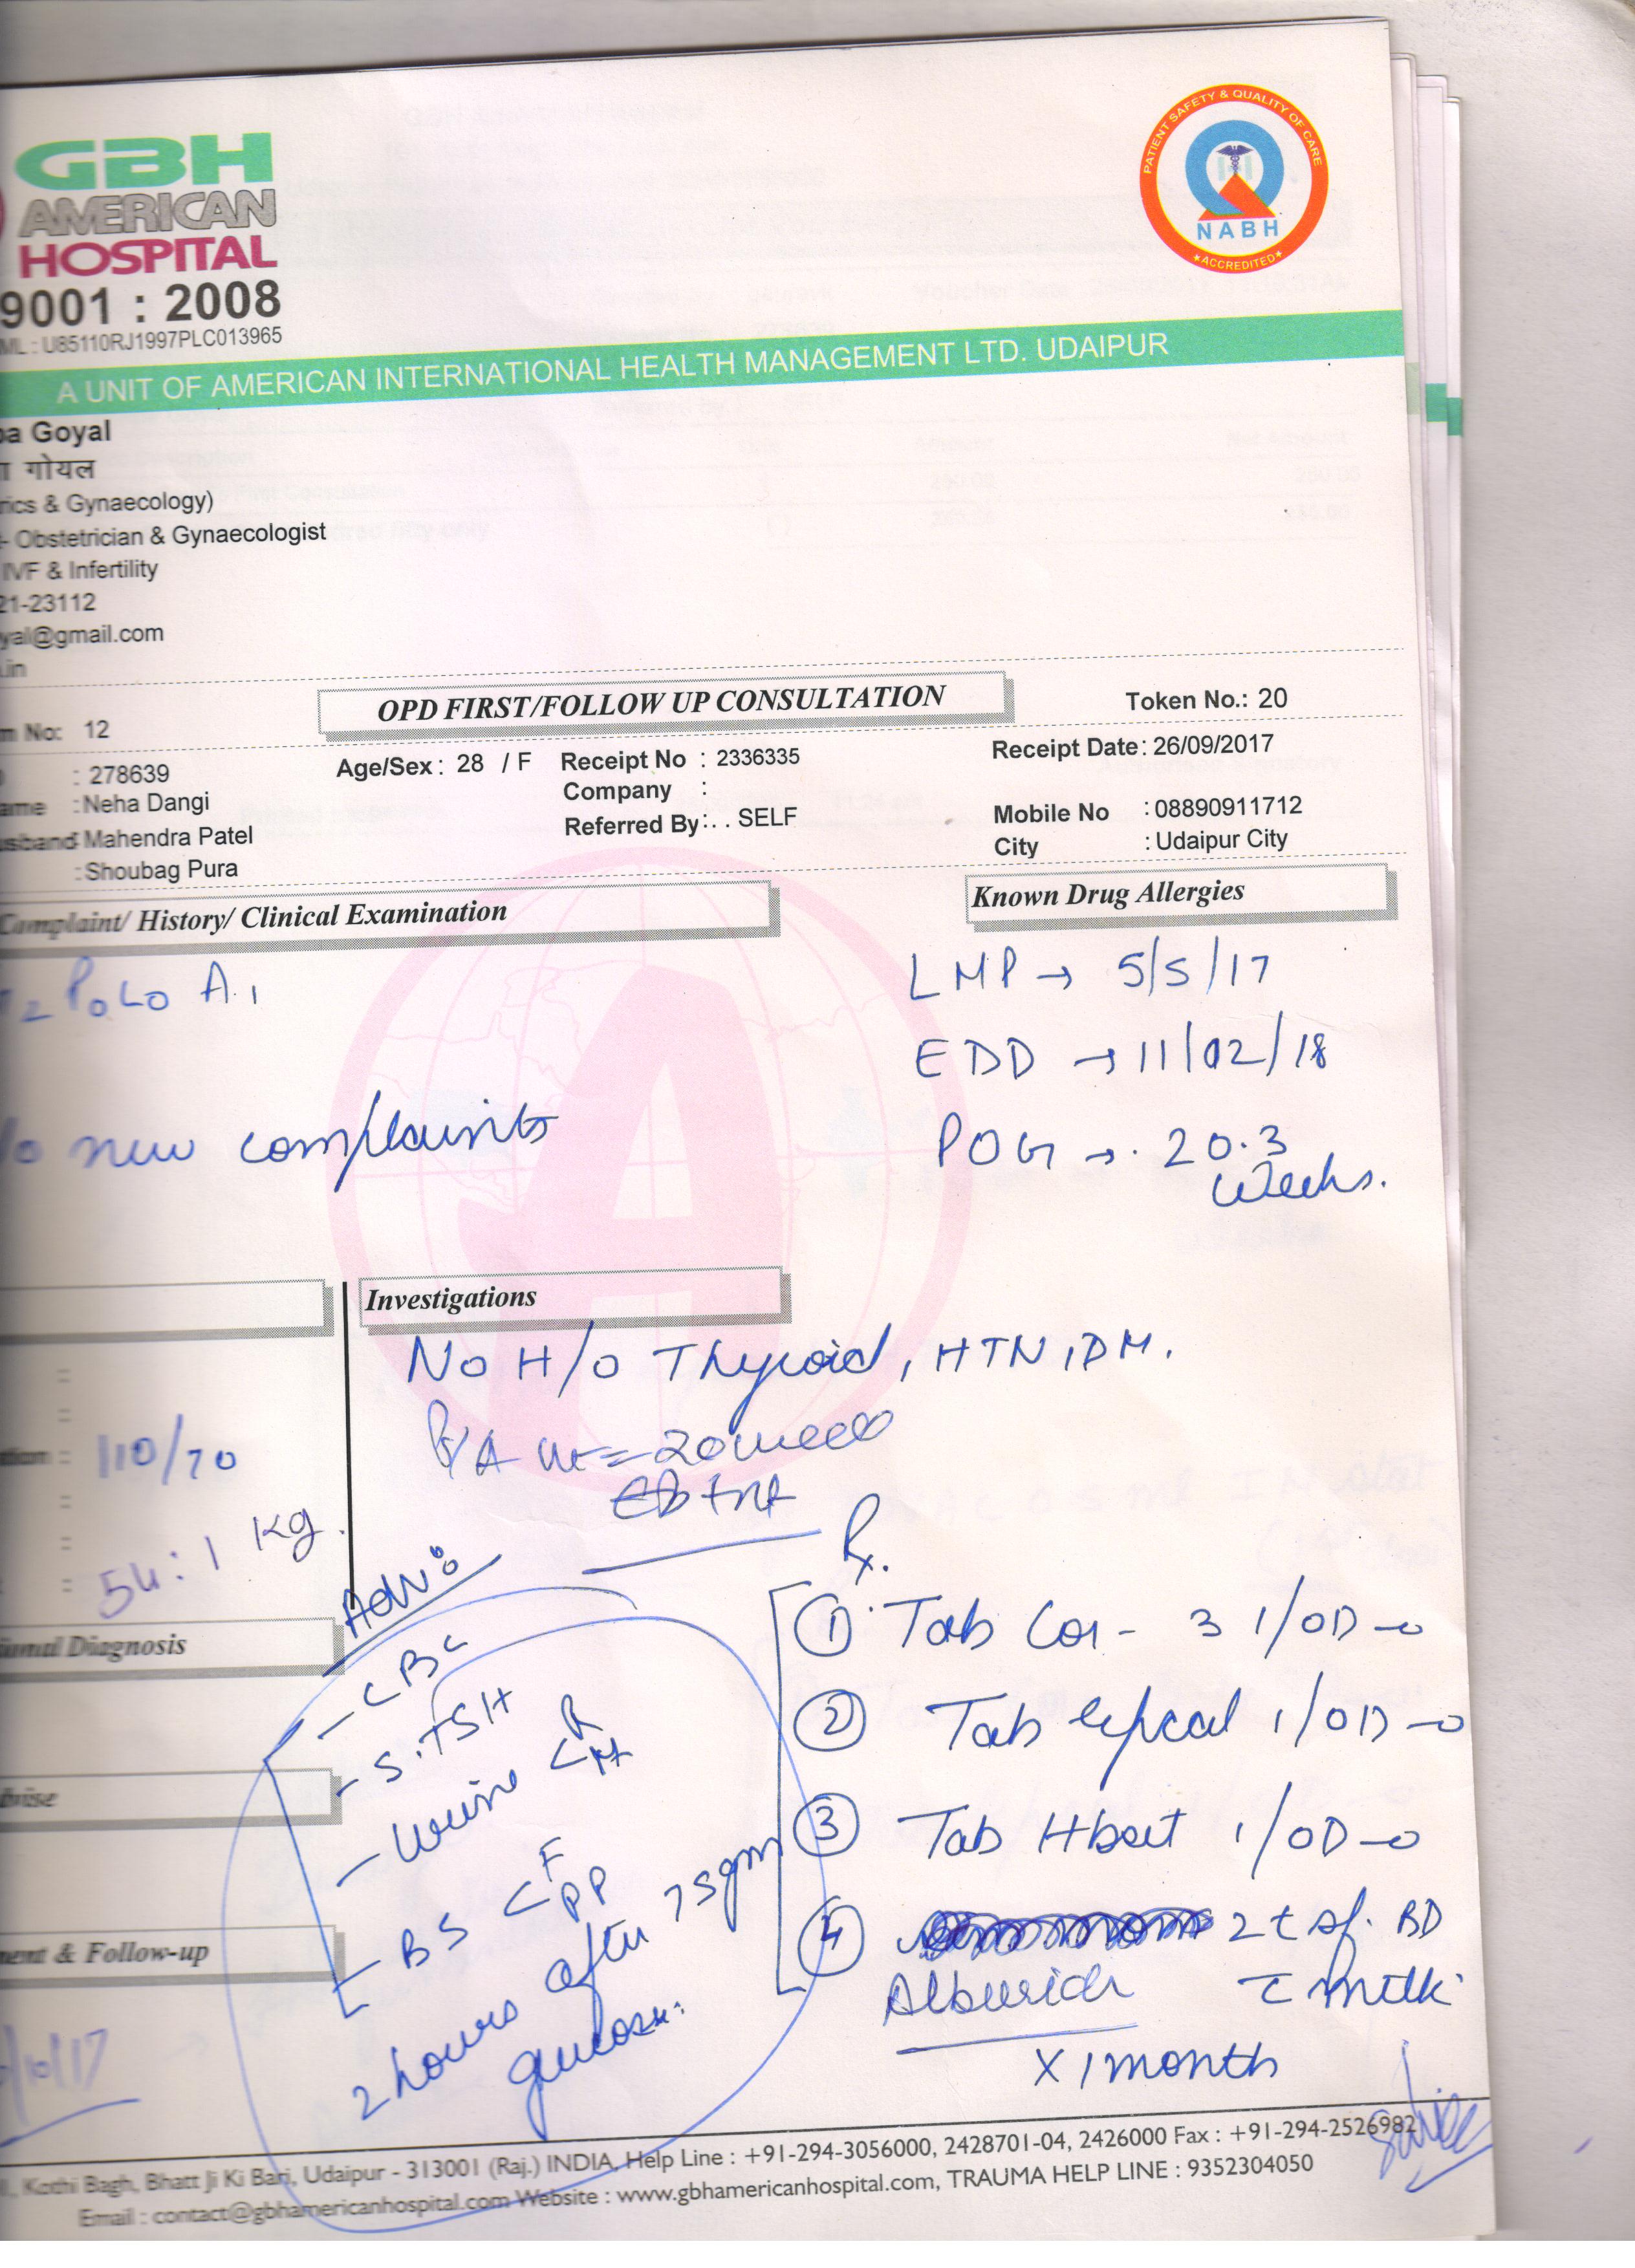 GBH
AMERICAN
HOSPITAL
9001 : 2008
ML : U85110RJ1997PLC013965
PATIENT SAFETY & QUALITY OF CARE
NABH
ACCREDITED
A UNIT OF AMERICAN INTERNATIONAL HEALTH MANAGEMENT LTD. UDAIPUR
pa Goyal
गोयल
rics & Gynaecology)
- Obstetrician & Gynaecologist
IVF & Infertility
21-23112
yal@gmail.com
.in
OPD FIRST/FOLLOW UP CONSULTATION
Token No.: 20
m No: 12
: 278639 Age/Sex : 28 / F Receipt No : 2336335 Receipt Date : 26/09/2017
ame : Neha Dangi Company : Mobile No : 08890911712
usband : Mahendra Patel Referred By : . . SELF City : Udaipur City
: Shoubag Pura
Complaint/ History/ Clinical Examination
Known Drug Allergies
2 P0L0 A1
LMP → 5/5/17
EDD → 11/02/18
new complaints
POG → 20.3
weeks.
Investigations
No H/o Thyroid, HTN, DM.
P/A ut = 20 week
110/70
54.1 kg.
Adv:
Rx.
- CBC
- S.TSH
- Urine C R M
- BS < F PP
2 hours after 75gm
glucose.
① Tab Cor-3 1/OD
② Tab 1/OD
③ Tab 1/OD
④ 2tsf. BD
c milk
x 1 month
onal Diagnosis
dvise
ment & Follow-up
/10/17
Kothi Bagh, Bhatt Ji Ki Bari, Udaipur - 313001 (Raj.) INDIA, Help Line : +91-294-3056000, 2428701-04, 2426000 Fax : +91-294-2526982
Email : contact@gbhamericanhospital.com Website : www.gbhamericanhospital.com, TRAUMA HELP LINE : 9352304050